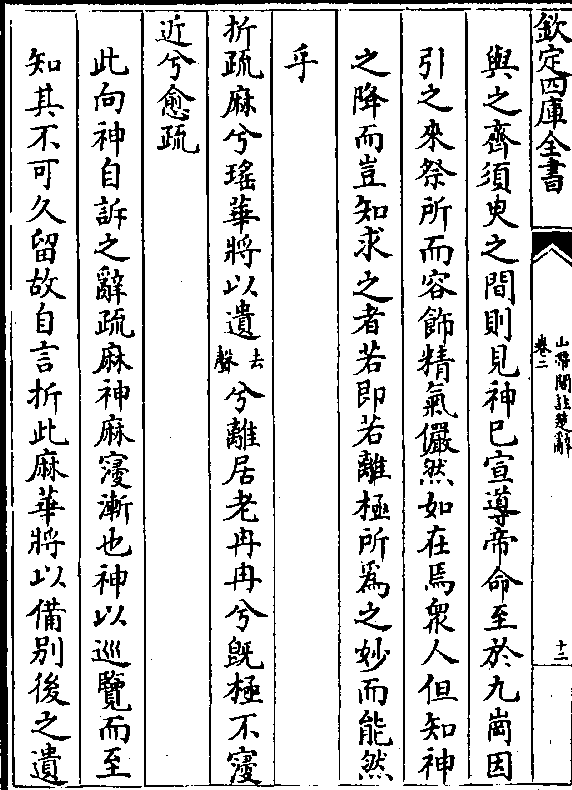 欽定四庫全書
山帶閣註楚辭
卷二
十二
與之齊須臾之間則見神已宣導帝命至於九崗因
引之來祭所而容飾精氣儼然如在焉衆人但知神
之降而豈知求之者若即若離極所爲之妙而能然
乎
折疏麻兮瑤華將以遺去聲兮離居老冉冉兮既極不寖
近兮愈疏
此向神自訴之辭疏麻神麻寖漸也神以巡覽而至
知其不可久留故自言折此麻華將以備別後之遺